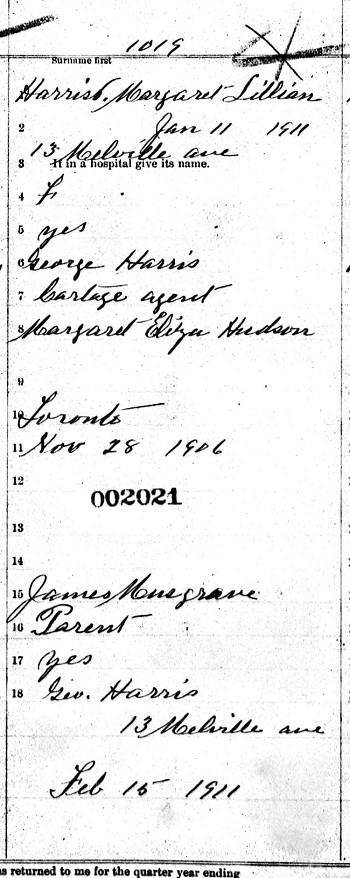 1019
Surname first
Harris, Margaret Lillian
2 Jan 11 1911
13 Melville ave
3 If in a hospital give its name.
4 F
5 yes
6 George Harris
7 Cartage agent
8 Margaret Eliza Hudson
9
10 Toronto
11 Nov 28 1906
12
002021
13
14
15 James Musgrave
16 Parent
17 yes
18 Geo. Harris
13 Melville ave
Feb 15 1911
as returned to me for the quarter year ending